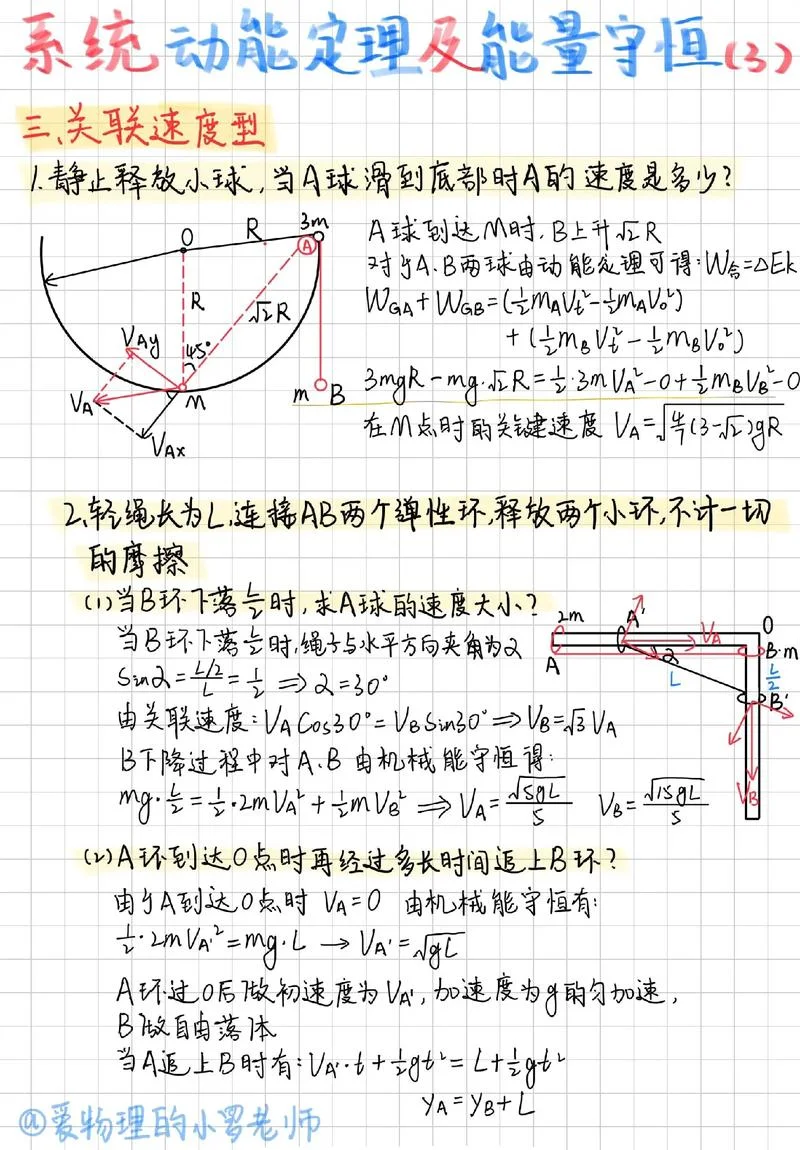 系统动能定理及能量守恒(3)
三、关联速度型
1.静止释放小球,当A球滑到底部时A的速度是多少?
O R 3m
A
R √2R
VAy 45°
VA M m B
VAx
A球到达M时,B上升√2R
对于A、B两球由动能定理可得:W合=ΔEk
WGA+WGB=(½mAVt²-½mAV0²)
+(½mBVt²-½mBV0²)
3mgR-mg·√2R=½·3mVA²-0+½mBVB²-0
在M点时的关键速度 VA=√(4/7(3-√2)gR)
2.轻绳长为L,连接AB两个弹性环,释放两个小环,不计一切
的摩擦
(1)当B环下落L/2时,求A球的速度大小?
当B环下落L/2时,绳子与水平方向夹角为2
Sin2=(L/2)/L=½ ⇒ 2=30°
由关联速度:VACos30°=VBSin30°⇒VB=√3VA
B下降过程中对A、B由机械能守恒得:
mg·L/2=½·2mVA²+½mVB² ⇒ VA=√(5gL)/5 VB=√(15gL)/5
2m A' O
VA
A 2 B·m
L L/2
B'
VB
(2)A环到达O点时再经过多长时间追上B环?
由于A到达O点时 VA=0 由机械能守恒有:
½·2mVA'²=mg·L → VA'=√gL
A环过O后做初速度为VA',加速度为g的匀加速,
B做自由落体
当A追上B时有:VA'·t+½gt²=L+½gt²
yA=yB+L
@爱物理的小罗老师